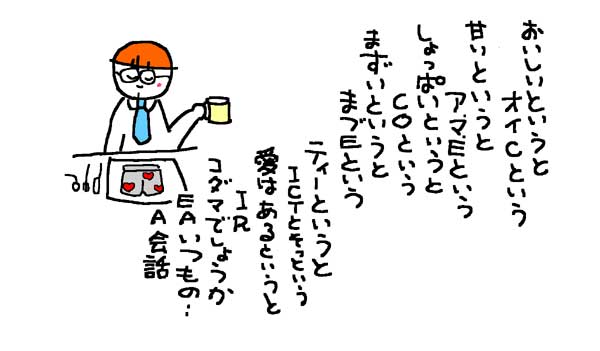 おいしいというと
オイCという
甘いというと
アマEという
しょっぱいというと
COという
まずいというと
まづEという
ティーというと
ICTとそっという
愛はあるというと
IR
コダマでしょうか
EAいつもの…
A会話